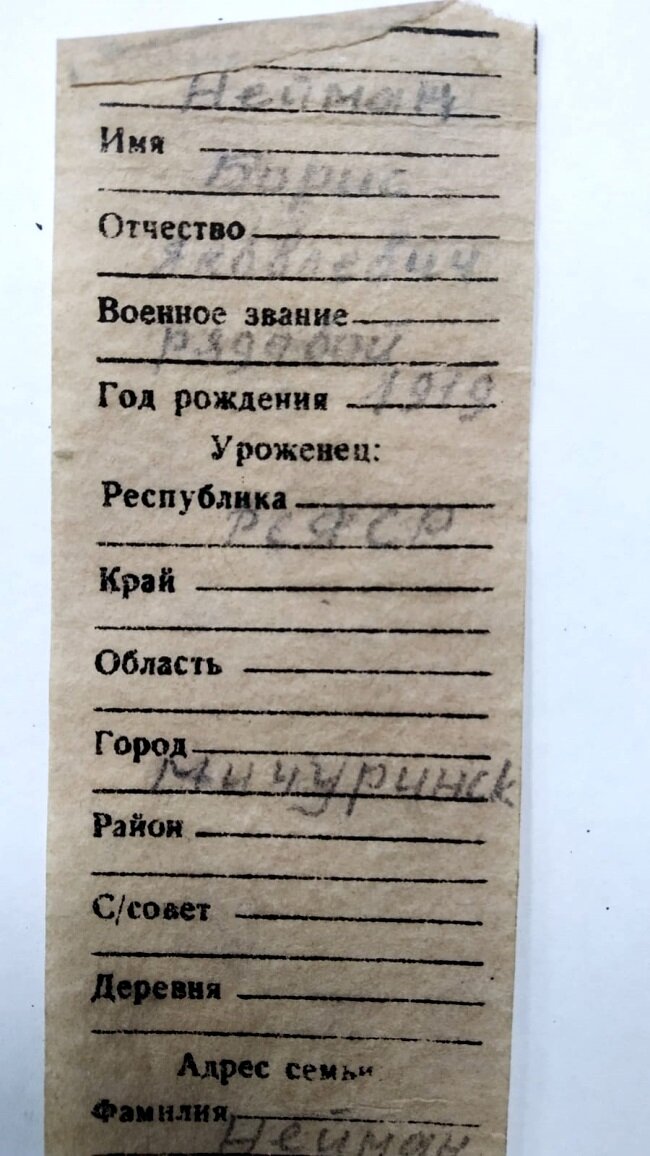 Нейман
Имя
Борис
Отчество
Яковлевич
Военное звание
рядовой
Год рождения 1919
Уроженец:
Республика
РСФСР
Край
Область
Город
Мичуринск
Район
С/совет
Деревня
Адрес семьи
Фамилия
Нейман